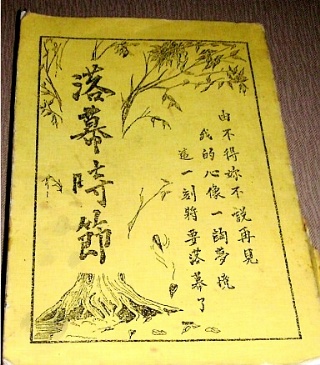 落幕時節
由不得妳不說再見
我的心像一陶夢境
這一刻將要落幕了